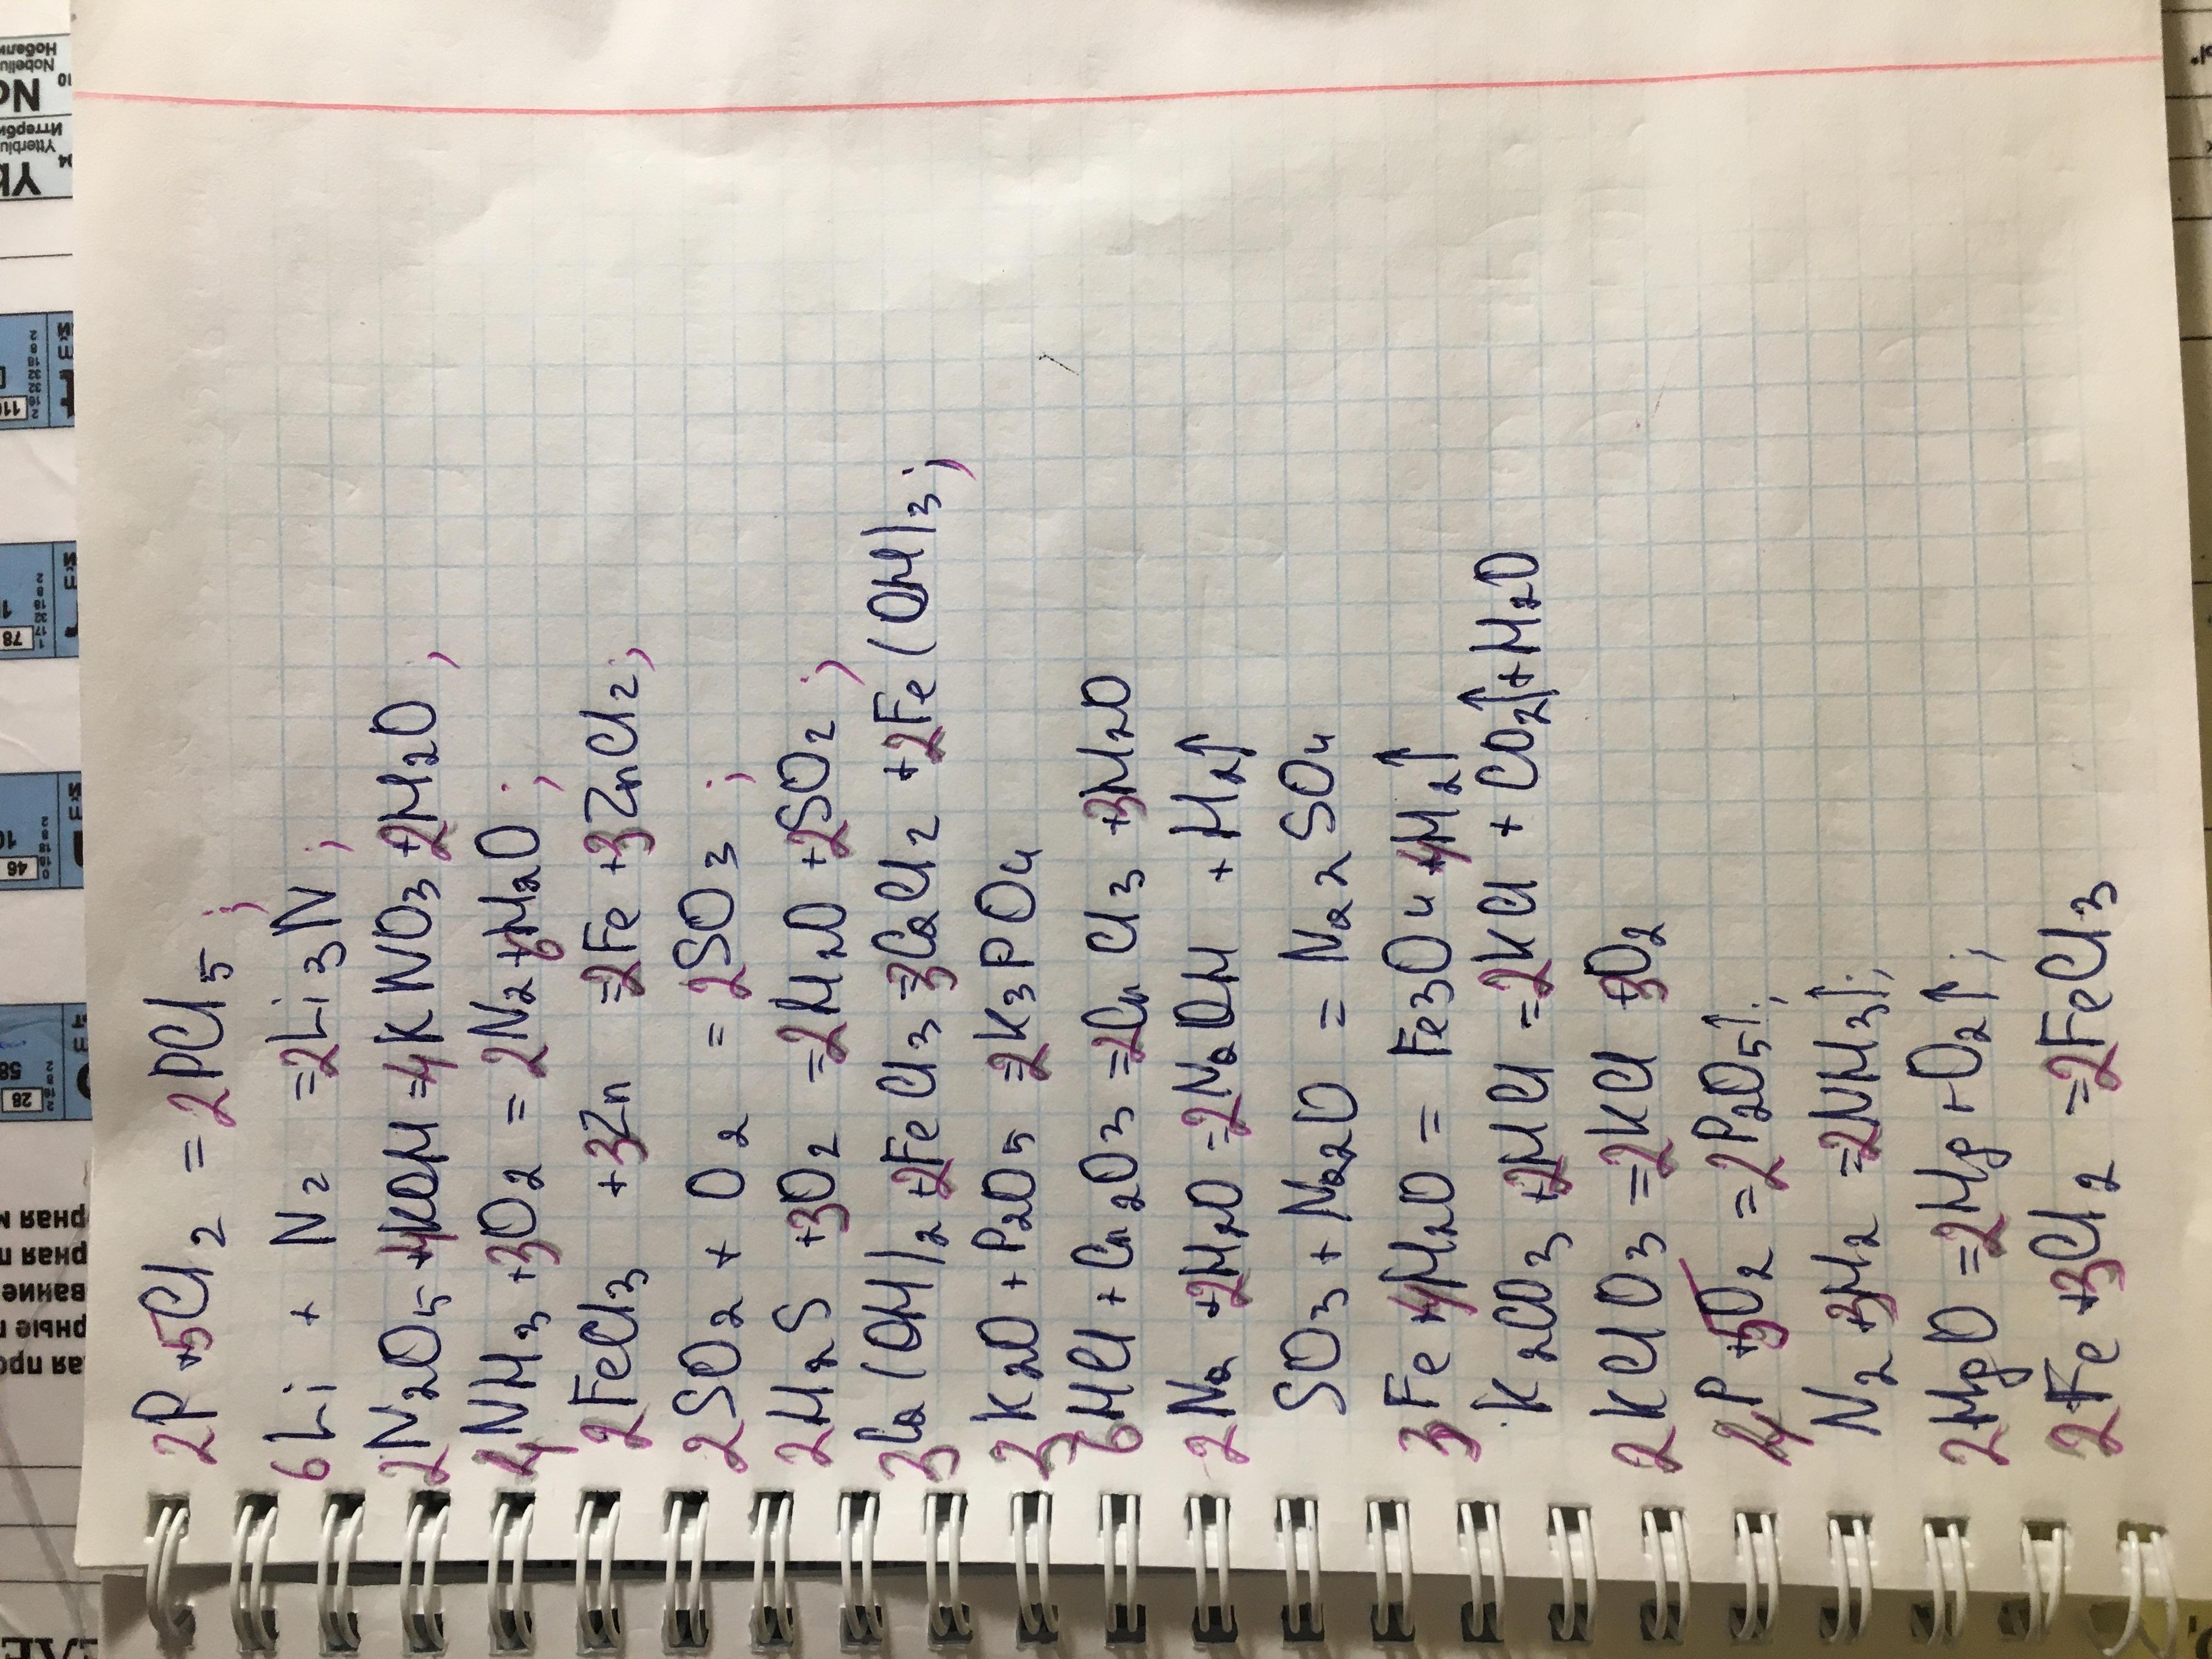 2P+5Cl2 = 2PCl5;
6Li + N2 =2Li3N;
2N2O5+4KOH=4KNO3+2H2O;
4NH3+3O2 = 2N2+6H2O;
2FeCl3 +3Zn =2Fe+3ZnCl2;
2SO2 + O2 = 2SO3;
2H2S +3O2 =2H2O+2SO2;
3Ca(OH)2+2FeCl3=3CaCl2 +2Fe(OH)3;
3K2O+P2O5=2K3PO4
6HCl+Cr2O3=2CrCl3+3H2O
2Na +2H2O=2NaOH + H2↑
SO3+Na2O = Na2SO4
3Fe+4H2O= Fe3O4+4H2↑
K2CO3+2HCl=2KCl + CO2↑+H2O
2KClO3=2KCl +3O2
4P+5O2=2P2O5↑;
N2+3H2 =2NH3↑;
2MgO=2Mg+O2↑;
2Fe+3Cl2 =2FeCl3
Nobelium
No
Yb
110
78
46
28
58